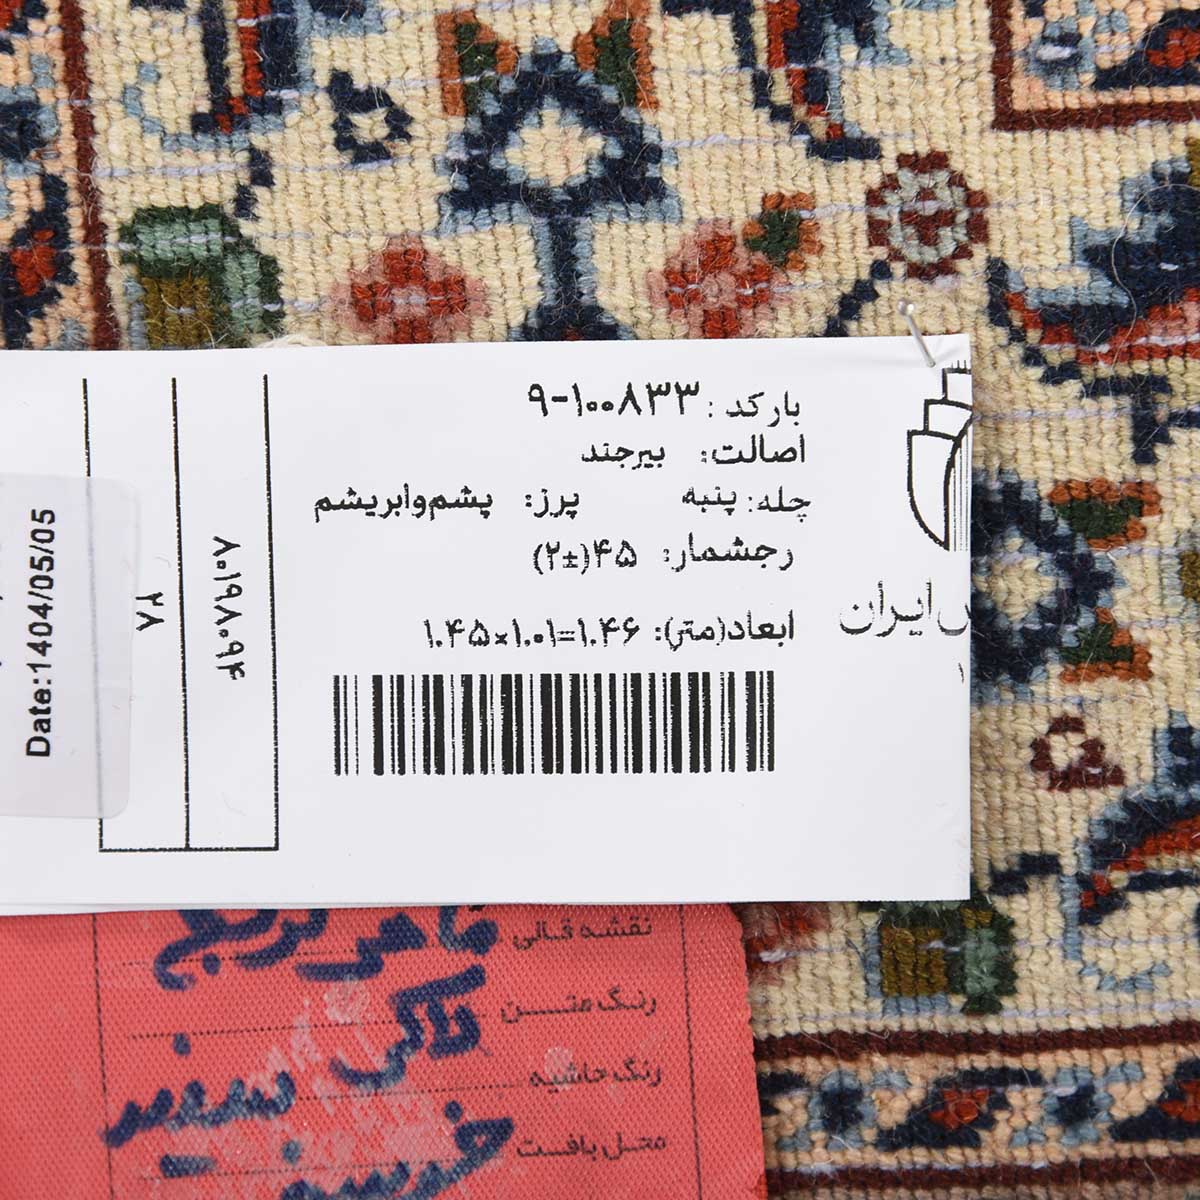 بارکد: ۹-۱۰۰۸۳۳
اصالت: بیرجند
چله: پنبه پرز: پشم‌وابریشم
رجشمار: ۴۵(±۲)
ابعاد(متر): ۱.۴۵×۱.۰۱=۱.۴۶
ایران
۸۰۱۹۸۰۹۴
۲۸
Date:1404/05/05
نقشه قالی
رنگ متن
رنگ حاشیه
محل بافت